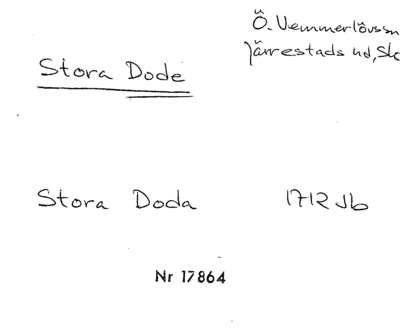 Ö. Vemmerlövs sn
Järrestads hd, Sk
Stora Dode
Stora Doda 1712 Jb
Nr 17864